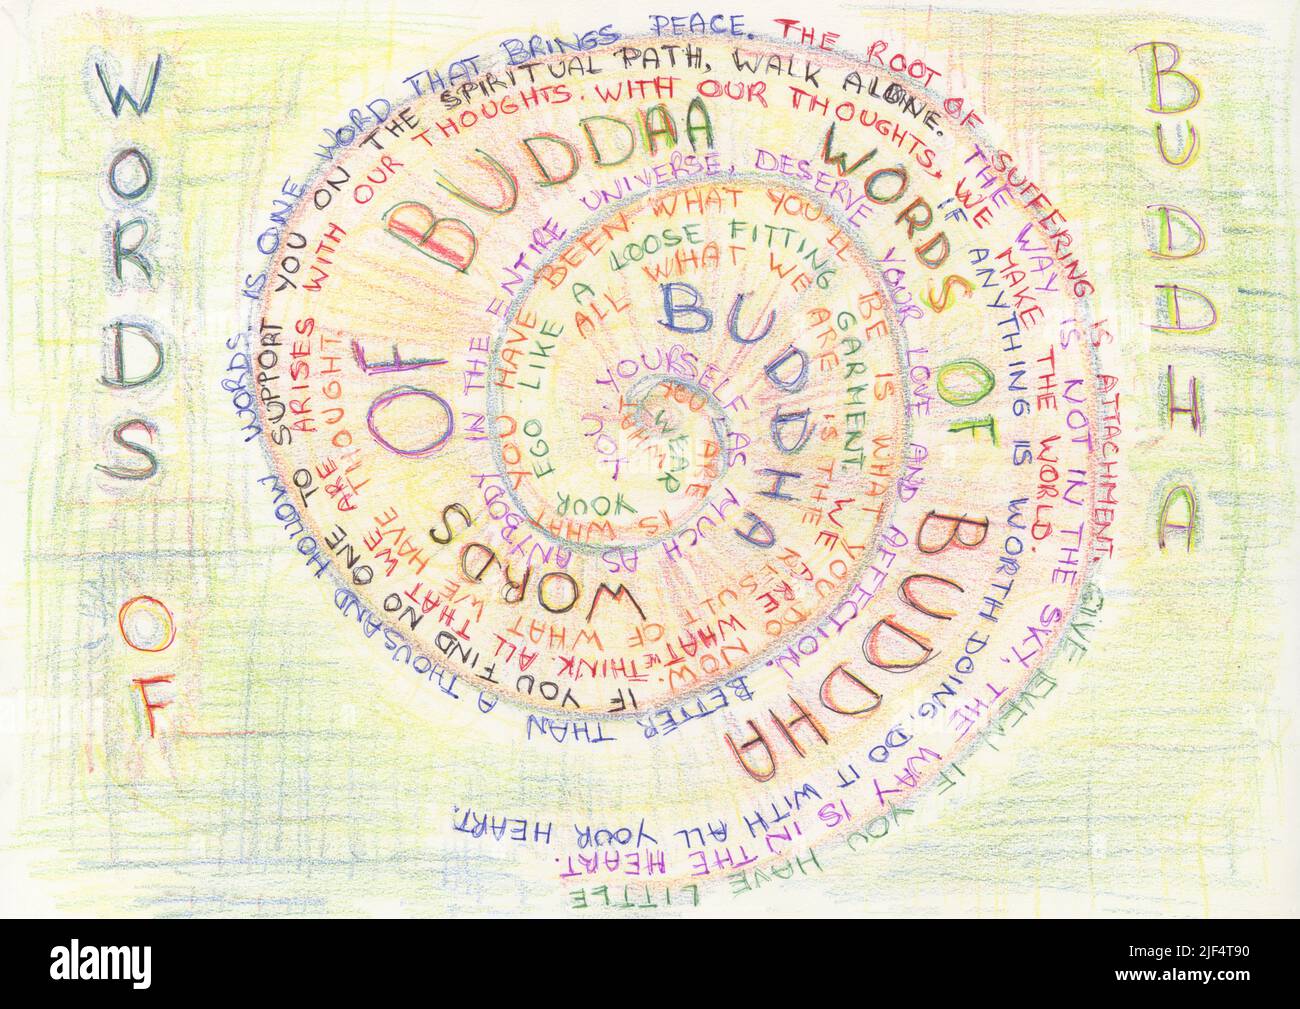 WORDS
OF
BUDDHA
WORDS OF BUDDHA
WORDS OF BUDDAA
WORDS OF BUDDHA
YOUR EGO LIKE A LOOSE FITTING GARMENT
WEAR
WHAT YOU ARE IS WHAT YOU HAVE BEEN. WHAT YOU'LL BE IS WHAT YOU DO NOW.
YOU, YOURSELF, AS MUCH AS ANYBODY IN THE ENTIRE UNIVERSE, DESERVE YOUR LOVE AND AFFECTION.
ALL WHAT WE ARE IS THE
OF WHAT WE HAVE THOUGHT.
BETTER THAN A THOUSAND HOLLOW WORDS IS ONE WORD THAT BRINGS PEACE.
THE ROOT OF SUFFERING IS ATTACHMENT.
GIVE EVEN IF YOU HAVE LITTLE
IF YOU FIND NO ONE TO SUPPORT YOU ON THE SPIRITUAL PATH, WALK ALONE.
WE ARE WHAT WE THINK. ALL THAT WE ARE ARISES WITH OUR THOUGHTS. WITH OUR THOUGHTS, WE MAKE THE WORLD.
THE WAY IS NOT IN THE SKY, THE WAY IS IN THE HEART.
IF ANYTHING IS WORTH DOING, DO IT WITH ALL YOUR HEART.
alamy
Image ID: 2JF4T90
www.alamy.com